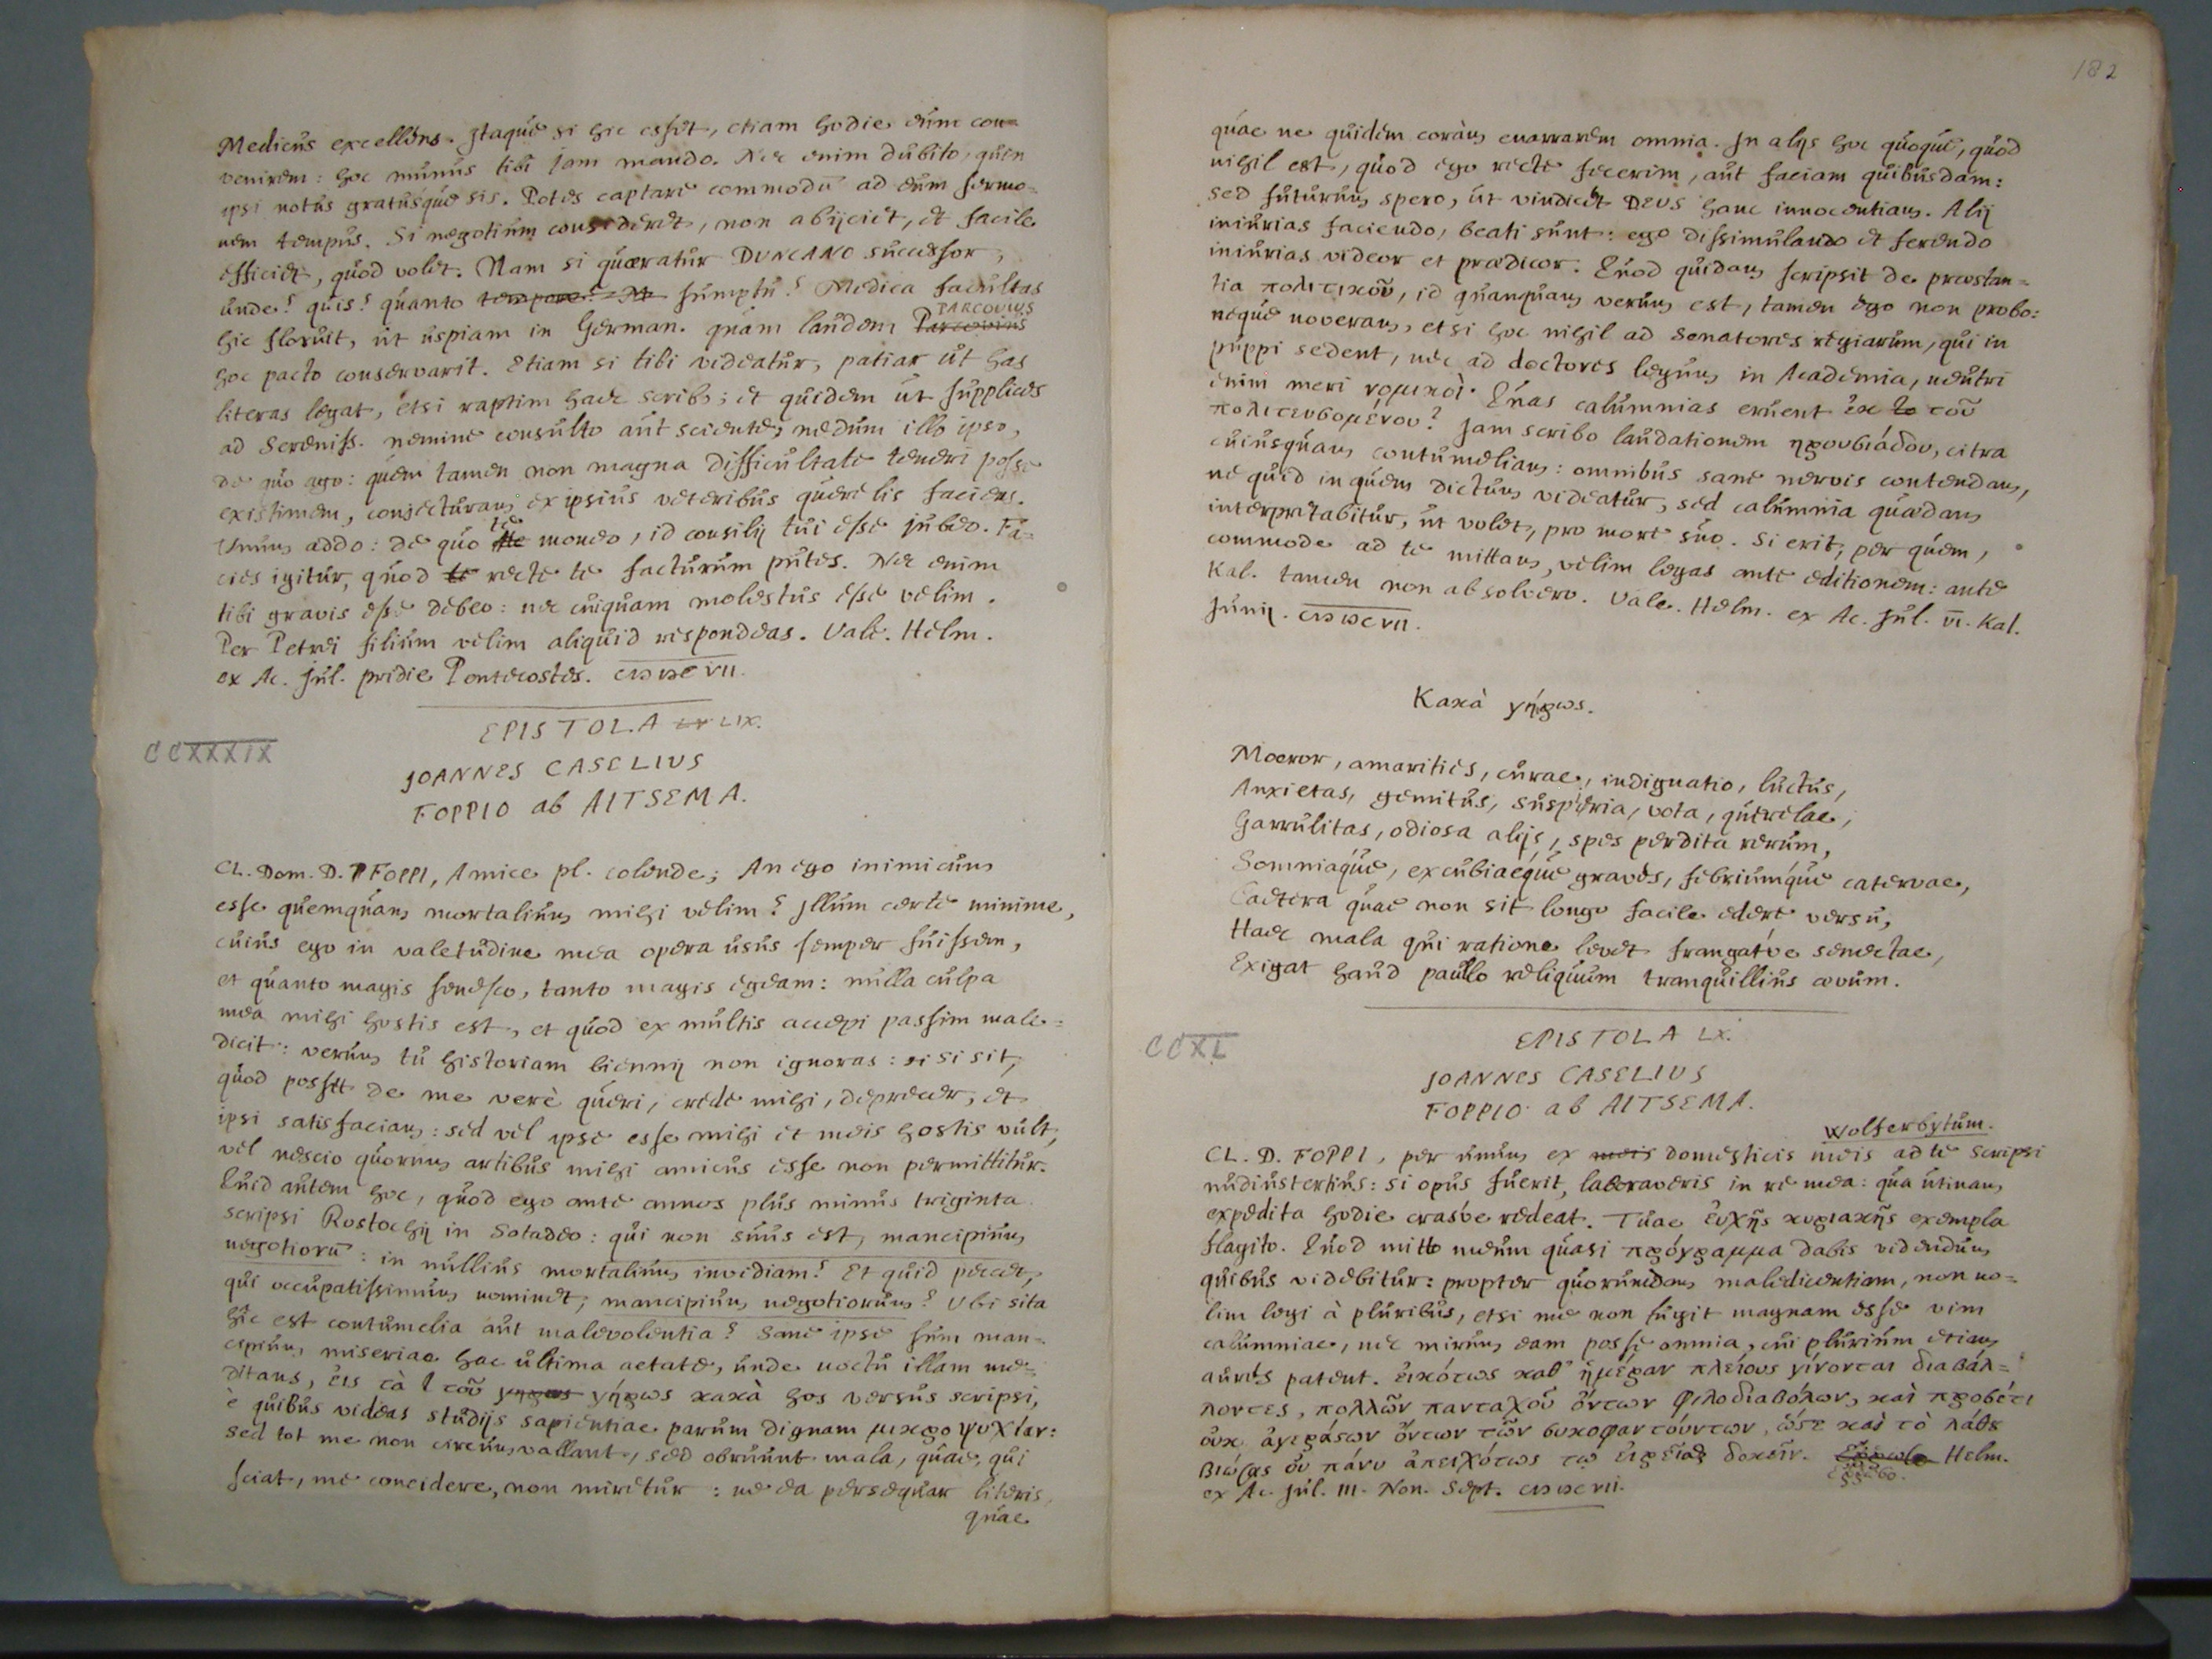 Medicus excellens. Itaque si hic esset, etiam hodie eum con-
venirem: hoc munus tibi jam mando. Nec enim dubito, quin
ipsi notus gratusque sis. Potes captare commodū ad eum sermo=
nem tempus. Si negotium consideret, non abijciet, et facile
efficiet, quod volet. Nam si quaeratur DUNCANO successor,
unde? quis? quanto sumptu? Medica facultas
PARCOVIUS
hic floruit, ut uspiam in German. quam laudem Parcovius
hoc pacto conservarit. Etiam si tibi videatur, patiar ut has
literas legat, etsi raptim haec scribo; et quidem ut supplices
ad Sereniss. nemine consulto aut sciente, nedum illo ipso,
de quo ago: quem tamen non magna difficultate teneri posse
existimem, conjecturam ex ipsius veteribus querelis faciens.
te
Unum addo: de quo moneo, id consilij tui esse jubeo. Fa=
cies igitur, quod te recte te facturum putes. Nec enim
tibi gravis esse debeo: nec cuiquam molestus esse velim.
Per Petrei filium velim aliquid respondeas. Vale. Helm.
ex Ac. Jul. pridie Pentecostes. CIↃ IↃC VII.
EPISTOLA LIX.
CCXXXIX
JOANNES CASELIUS
FOPPIO ab AITSEMA.
CL. Dom. D. FOPPI, Amice pl. colende; An ego inimicum
esse quemquam mortalium mihi velim? Illum certe minime,
cuius ego in valetudine mea opera usus semper fuissem,
et quanto magis senesco, tanto magis egeam: nulla culpa
mea mihi hostis est, et quod ex multis accepi passim male=
dicit: verum tu historiam biennij non ignoras: si si sit,
quod possit de me verè queri, crede mihi, deprecer, et
ipsi satisfaciam: sed vel ipse esse mihi et meis hostis vult,
vel nescio quorum artibus mihi amicus esse non permittitur.
Quid autem hoc, quod ego ante annos plus minus triginta
scripsi Rostochij in Sotadeo: qui non suus est, mancipium
negotiorū: in nullius mortalium invidiam? Et quid peccet,
qui occupatissimum nominet, mancipium negotiorum? Ubi sita
hîc est contumelia aut malevolentia? Sane ipse sum man=
cipium miseriae hac ultima aetate, unde noctu illam me=
ditans, εἰς τὰ τοῦ γήρως κακὰ hos versus scripsi,
è quibus videas studijs sapientiae parum dignam μικροψυχίαν:
sed tot me non circumvallant, sed obruunt mala, quae, qui
sciat, me concidere, non miretur: ne ea persequar literis,
quae
182
quae ne quidem coràm enarrarem omnia. In alijs hoc quoque, quod
nihil est, quod ego recte fecerim, aut faciam quibusdam:
sed futurum spero, ut vindicet DEUS hanc innocentiam. Alij
iniurias faciendo, beati sunt: ego dissimulando et ferendo
iniurias videor et praedicor. Quod quidam scripsit de praestan=
tia πολιτικοῦ, id quanquam verum est, tamen ego non probo:
neque noveram, etsi hoc nihil ad Senatores regiarum, qui in
puppi sedent, nec ad doctores legum in Academia, neutri
enim meri νομικοὶ. Quas calumnias eruent ἐκ τοῦ
πολιτευσομένου? Jam scribo laudationem citra
cuiusquam contumeliam: omnibus sane nervis contendam,
ne quid in quem dictum videatur, sed calumnia quaedam
interpretabitur, ut volet, pro more suo. Si erit, per quem,
commode ad te mittam, velim legas ante editionem: ante
Kal. tamen non absolvero. Vale. Helm. ex Ac. Jul. VI. Kal.
Junij. CIↃ IↃC VII.
Κακὰ γήρως.
Moeror, amarities, curae, indignatio, luctus,
Anxietas, gemitus, suspiria, vota, querelae,
Garrulitas, odiosa alijs, spes perdita rerum,
Somniaque, excubiaeque graves, febriumque catervae,
Caetera quae non sit longo facile edere versu,
Haec mala qui ratione levet frangatve senectae,
Exigat haud paullo reliquum tranquillius aevum.
EPISTOLA LX.
CCXL
JOANNES CASELIUS
FOPPIO ab AITSEMA.
Wolferbytum.
CL. D. FOPPI, per unum ex meis domesticis meis ad te scripsi
nudiustertius: si opus fuerit, laboraveris in re mea: qua utinam
expedita hodie crasve redeat. Tuae εὐχῆς κυριακῆς exempla
flagito. Quod mitto meum quasi πρόγραμμα dabis videndum
quibus videbitur: propter quorundam maledicentiam, non no=
lim legi à pluribus, etsi me non fugit magnam esse vim
calumniae, nec mirum eam posse omnia, cui plurium etiam
aures patent. εἰκότως καθ' ἡμέραν πλείους γίνονται διαβάλ=
λοντες, πολλῶν πανταχοῦ ὄντων φιλοδιαβόλων, καὶ προσέτι
οὐκ ὄντων τῶν συκοφαντούντων, ὥστε καὶ τὸ λάθε
βιώσας οὐ πάνυ ἀπεικότως τῷ δοκεῖν. Helm.
ἔρρωσο.
ex Ac. Jul. III. Non. Sept. CIↃ IↃC VII.